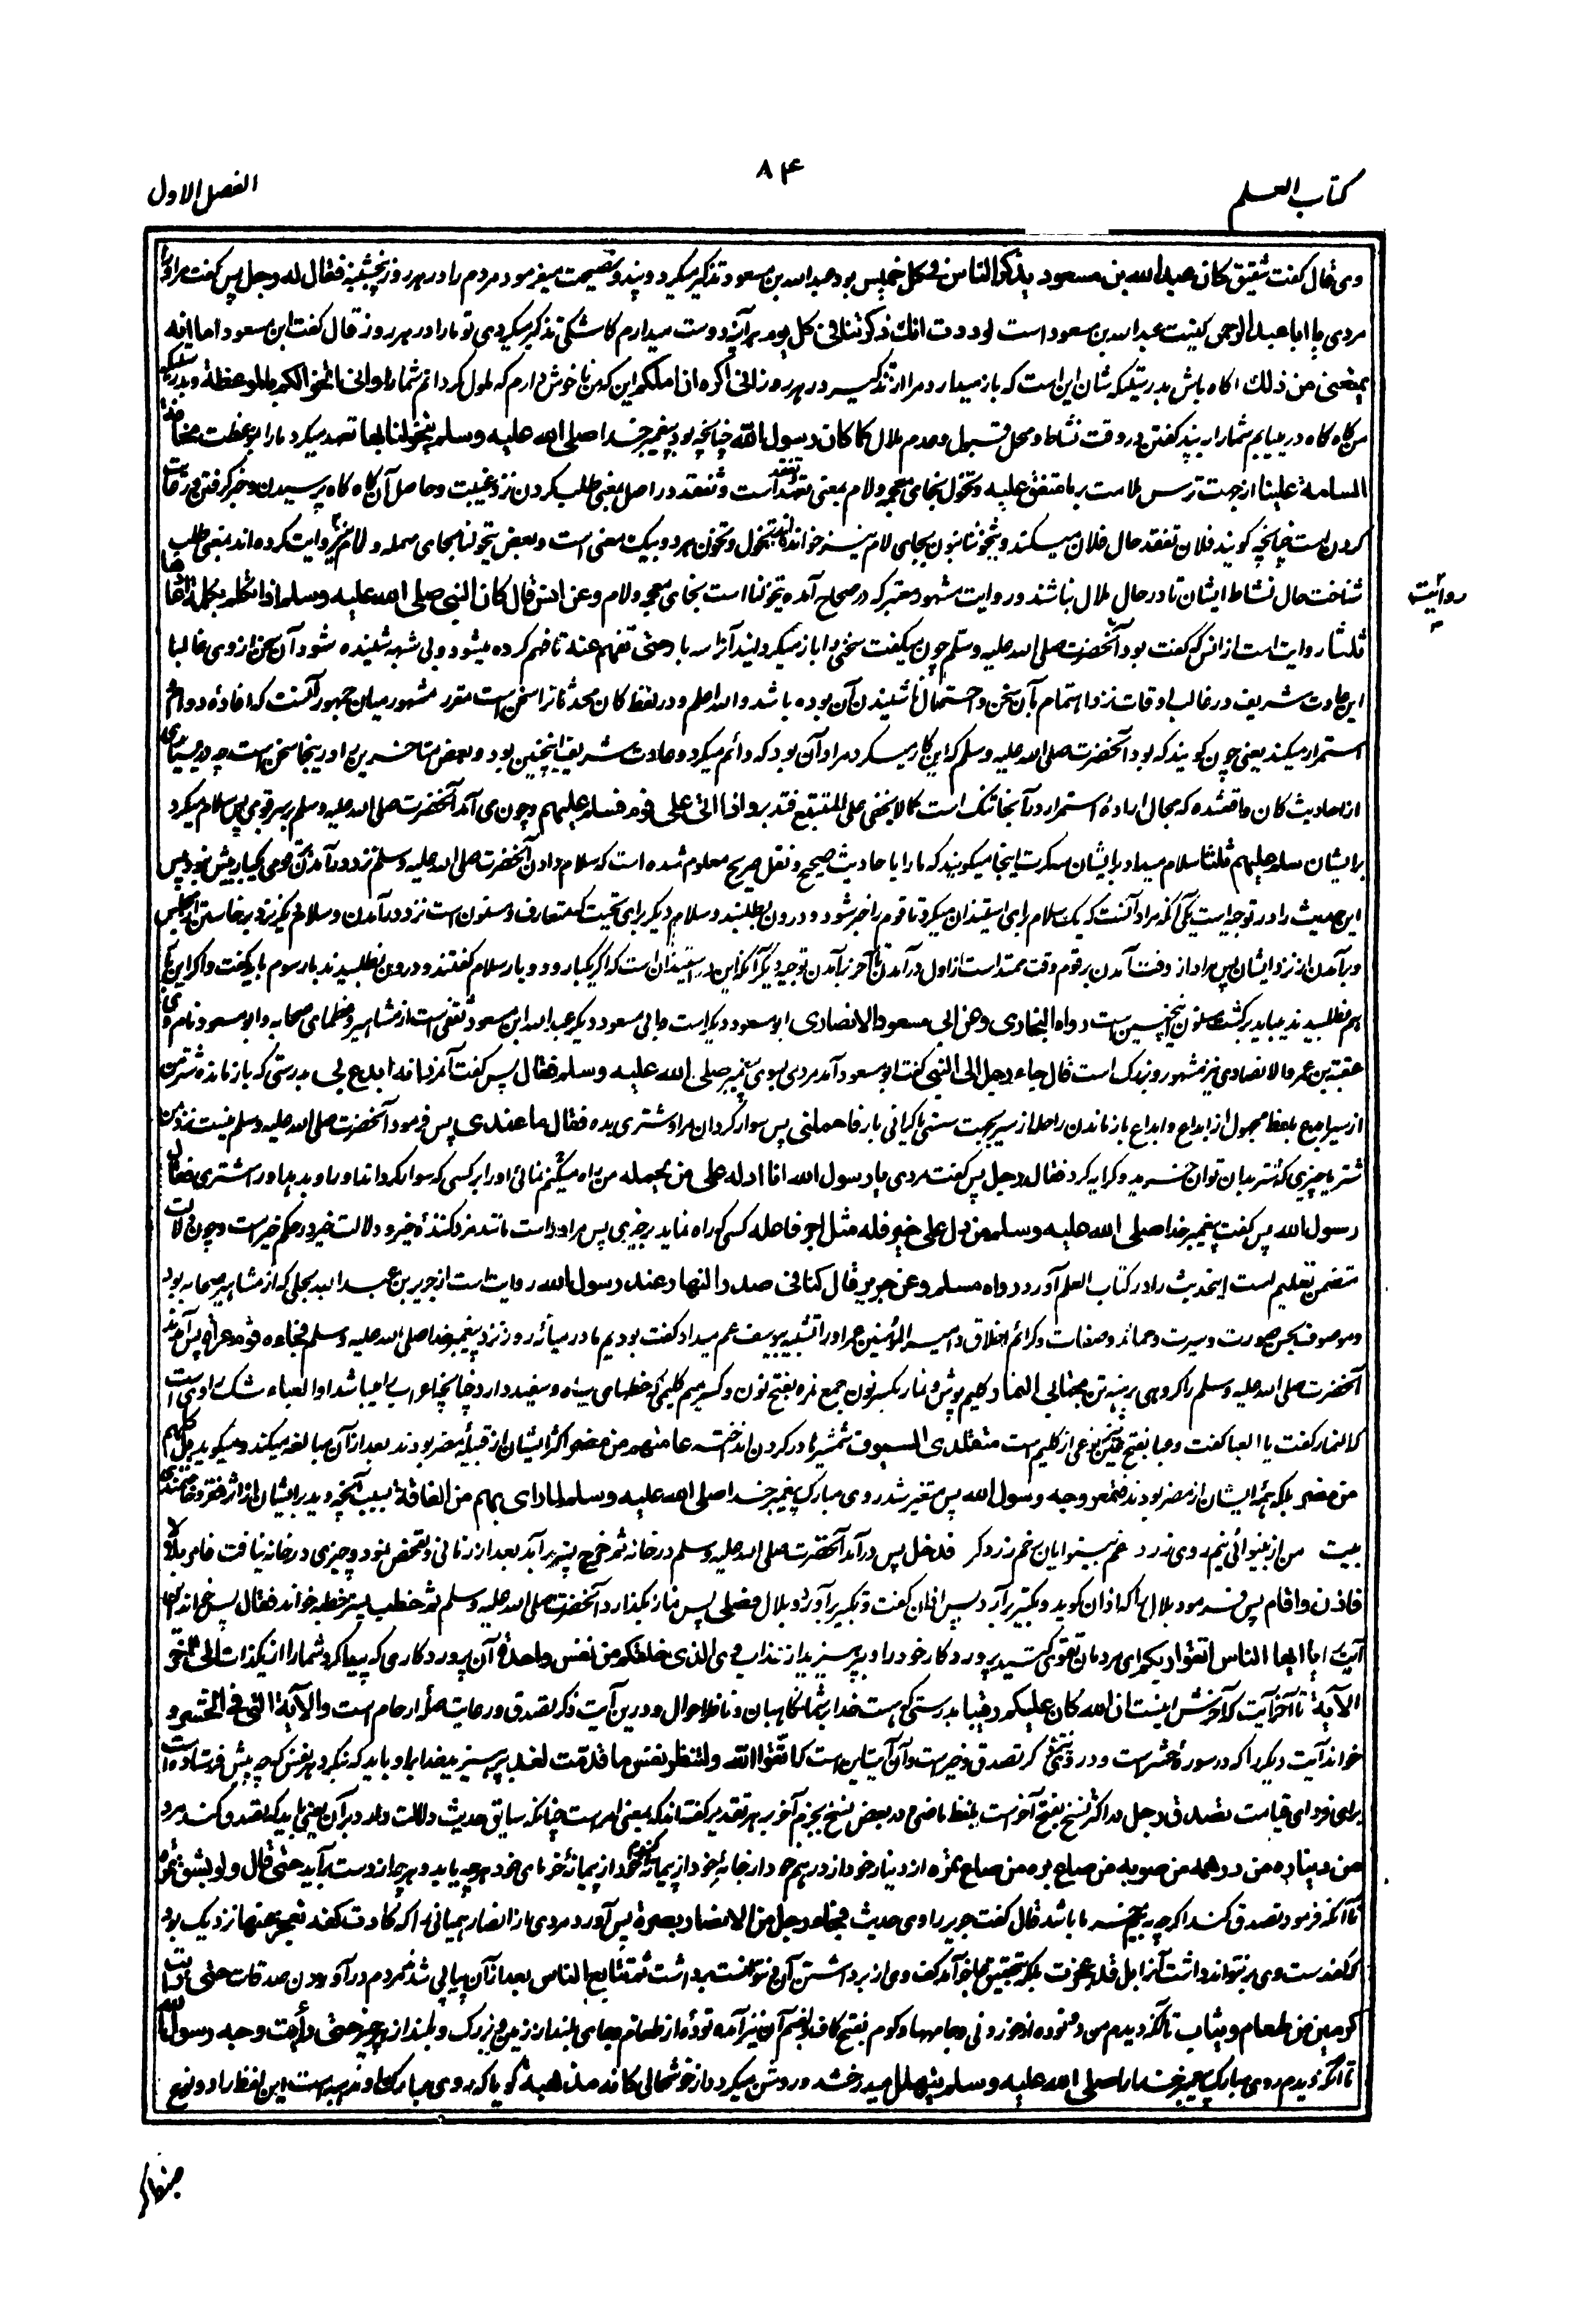 کتاب العلم
۸۴
الفصل الاول
وی قال گفت شقیق کان عبد الله بن مسعود یذکر الناس فی کل خمیس بود عبد الله بن مسعود تذکیر میکرد و پند و نصیحت میفرمود مردم را در هر روز پنجشنبه فقال له رجل پس گفت مر او را
مردی یا ابا عبد الرحمن کنیت عبد الله بن مسعود است لوددت انک ذکرتنا فی کل یوم هر آئینه دوست میدارم کاشکی تذکیر میکردی تو ما را در هر روز قال گفت ابن مسعود اما انه
یمنعنی من ذلک آگاه باش بدرستیکه شان این است که باز میدارد مرا از تذکیر در هر روز انی اکره ان املکم این که من ناخوش دارم که ملول گردانم شما را و انی اتخولکم بالموعظة و بدرستیکه
من گاه گاه در میایم شما را به پند گفتن در وقت نشاط و محل قبول و عدم ملال کما کان رسول الله چنانچه بود پیغمبر خدا صلی الله علیه وسلم یتخولنا بها تعهد میکرد ما را بموعظت مخافة
السامة علینا از جهت ترس ملامت بر ما متفق علیه و تخول بخای معجمه و لام بمعنی تعهد است و تفقد در اصل بمعنی طلب کردن نزد غیبت و حاصل آن گاه گاه پرسیدن و خبر گرفتن
کردن است چنانچه گویند فلان تفقد حال فلان میکند و یتخوننا بنون بجای لام نیز خوانده اند تخول و تخون هر دو بیک معنی است و بعض یتحولنا بحای مهمله و لام نیز روایت کرده اند بمعنی طلب
شناخت حال نشاط ایشان تا در حال ملال نباشند و روایت مشهور معتبر که در صحاح آمده یتخولنا است بخای معجمه و لام وعن انس قال کان النبی صلی الله علیه وسلم اذا تکلم بکلمة اعادها
ثلثا روایت است از انس که گفت بود آنحضرت صلی الله علیه وسلم چون میگفت سخنی را باز میگردانید آنرا سه بار حتی تفهم عنه تا فهم کرده میشود و بی شبهه شنیده شود آن سخن از وی غالبا
این عادت شریف در غالب اوقات نزد اهتمام بآن سخن و احتمال ناشنیدن آن بوده باشد والله اعلم و در لفظ کان محدثان را سخن است مقرر مشهور میان جمهور آنست که افادۀ دوام و
استمرار میکند یعنی چون گویند که بود آنحضرت صلی الله علیه وسلم که این کار میکرد مراد آن بود که دائم میکرد و عادت شریف اینچنین بود و بعض متاخرین را در اینجا سخن است چه در بسیاری
از احادیث کان واقع شده که مجال ارادۀ استمرار در آنجا تنگ است کما لا یخفی علی المتتبع فتدبر و اذا اتی علی قوم فسلم علیهم و چون می آمد آنحضرت صلی الله علیه وسلم بر قومی پس سلام میکرد
بر ایشان سلم علیهم ثلثا سلام میداد بر ایشان سه کرت اینجا میگویند که ما را با حادیث صحیح و نقل صریح معلوم شده است که سلام دادن آنحضرت صلی الله علیه وسلم نزد در آمدن بر قومی یکبار بیش نبود پس
این حدیث را در توجیه است یکی آنکه مراد آنست که یک سلام برای استیذان میکرد تا قوم را خبر شود و درون بطلبند و سلام دیگر برای تحیت که متعارف و مسنون است نزد در آمدن و سلام دیگر نزد برخاستن از مجلس
و برآمدن از نزد ایشان پس مراد از وقت آمدن بر قوم وقت ممتد است از اول در آمدن تا آخر برآمدن توجیه دیگر آنکه این در استیذان است که اگر یکبار و دو بار سلام گفتند و درون نطلبیدند بار سوم باید گفت و اگر این بار
هم نطلبیدند بباید برگشت مسنون اینچنین است رواه البخاری وعن ابی مسعود الانصاری ابو مسعود دیگر است و ابن مسعود دیگر عبد الله ابن مسعود ثقفی است از مشاهیر و عظمای صحابه و ابو مسعود نام وی
عقبة بن عمرو الانصاری نیز مشهور و بزرگ است قال جاء رجل الی النبی گفت ابو مسعود آمد مردی بسوی پیغمبر صلی الله علیه وسلم فقال پس گفت آنمرد انه ابدع بی بدرستی که باز مانده شتر من
از سیر ابدع بلفظ مجهول از ابداع و ابداع باز ماندن راحله از سیر بجهت سستی یا گرانی بار فاحملنی پس سوار گردان مرا و شتری بده فقال ما عندی پس فرمود آنحضرت صلی الله علیه وسلم نیست نزد من
شتر یا چیزی که شتر بدان توان خرید و کرایه کرد فقال رجل پس گفت مردی یا رسول الله انا ادله علی من یحمله من راه مینمایم او را بر کسی که سوار گرداند او را و بدهد او را شتری فقال
رسول الله پس گفت پیغمبر خدا صلی الله علیه وسلم من دل علی خیر فله مثل اجر فاعله کسی که راه نماید بر چیزی پس مر او راست مانند مزد کنندۀ خیر و دلالت خیر در حکم خیر است و چون دلالت
متضمن تعلیم است اینحدیث را در کتاب العلم آورد رواه مسلم وعن جریر قال کنا فی صدر النهار عند رسول الله روایت است از جریر بن عبد الله بجلی که از مشاهیر صحابه بود
و موصوف بحسن صورت و سیرت و محامد صفات و کرائم اخلاق و امیر المؤمنین عمر او را تشبیه بیوسف عم میداد گفت بودیم ما در میانۀ روز نزد پیغمبر خدا صلی الله علیه وسلم فجاءه قوم عراة پس آمدند
آنحضرت صلی الله علیه وسلم را گروهی برهنه تن مجتابی النمار گلیم پوش و نمار بکسر نون جمع نمره بفتح نون و کسر میم گلیمی که خطهای سیاه و سفید دارد چنانچه اعراب را میباشد او العباء شک راوی است
که النمار گفت یا العبا گفت و عبا بفتح عین نوعی از گلیم است متقلدی السیوف شمشیرها در گردن انداخته عامتهم من مضر اکثر ایشان از قبیلۀ مضر بودند بعد از آن مبالغه میکند و میگوید بل کلهم
من مضر بلکه همه ایشان از مضر بودند فتمعر وجه رسول الله پس متغیر شد روی مبارک پیغمبر خدا صلی الله علیه وسلم لما رای بهم من الفاقة بسبب آنچه دید بر ایشان از اثر فقر و حاجتمندی
بیت من از بینوائی نیم روی زرد غم بینوایان رخم زرد کرد فدخل پس در آمد آنحضرت صلی الله علیه وسلم در خانه ثم خرج پستر برآمد بعد از زمانی و تفحص نمود و چیزی در خانه نیافت فامر بلالا
فاذن و اقام پس فرمود بلال را که اذان گوید و تکبیر برآرد پس اذان گفت و تکبیر برآورد بلال فصلی پس نماز بگذارد آنحضرت صلی الله علیه وسلم ثم خطب پستر خطبه خواند فقال پس خواند این
آیت را یا ایها الناس اتقوا ربکم ای مردمان تقوی کنید پروردگار خود را و بپرهیزید از عذاب وی الذی خلقکم من نفس واحدة آن پروردگاری که پیدا کرد شما را از یک ذات الی آخر
الآیة تا آخر آیت که آخرش اینست ان الله کان علیکم رقیبا بدرستی که هست خدا بر شما نگاهبان و ناظر احوال و درین آیت ذکر تصدق و رعایت صلۀ ارحام است والآیة التی فی الحشر و
خواند آیت دیگر را که در سورۀ حشر است و در وی ذکر تصدق و خیر است و آن آیت این است که اتقوا الله ولتنظر نفس ما قدمت لغد بپرهیزید خدا را و باید که بنگرد هر نفس که چه پیش فرستاده است
برای فردای قیامت تصدق رجل در اکثر نسخ بفتح آخر است بلفظ ماضی و در بعض نسخ بجزم آخر بهر تقدیر گفته اند که بمعنی امر است چنانکه سابق حدیث دلالت دارد بر آن یعنی باید که تصدق کند مرد
من دیناره من درهمه من ثوبه من صاع بره من صاع تمره از دینار خود از درهم خود از جامۀ خود از پیمانۀ گندم خود از پیمانۀ خرمای خود هر چه یابد و هر چه از دست برآید حتی قال ولو بشق تمرة
تا آنکه فرمود تصدق کند اگرچه به نیم خرما باشد قال گفت جریر راوی حدیث فجاء رجل من الانصار بصرة پس آورد مردی از انصار همیانی را که کادت کفه تعجز عنها نزدیک بود
که کف دست وی بر نتواند داشت آنرا بل قد عجزت بلکه بتحقیق عاجز آمد کف وی از برداشتن آن و نتوانست برداشت ثم تتابع الناس بعد از آن پیاپی شد مردم در آوردن صدقات حتی رایت
کومین من طعام و ثیاب تا آنکه دیدم من دو توده از خوردنی و جامها و کوم بفتح کاف و بضم آن نیز آمده توده از طعام و جای بلند از زمین و بزرگ و بلند از هر چیز حتی رأیت وجه رسول الله
تا آنکه دیدم روی مبارک پیغمبر خدا را صلی الله علیه وسلم یتهلل میدرخشد و روشن میگردد از خوشحالی کانه مذهبة گویا که روی مبارک او زر اندوده است این لفظ را دو نوع
روایت